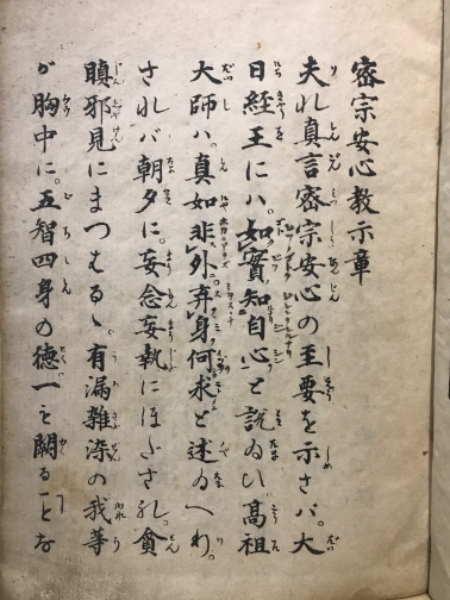 密宗安心教示章
夫れ真言密宗安心の主要を示さバ。大
日経王にハ。如實知自心と説ゐひ。高祖
大師ハ。真如非外弃身何求と述ゐへり。
されバ朝夕に。妄念妄執にほだされ。貪
瞋邪見にまつはるゝ。有漏雑染の我等
が胸中に。五智四身の徳一も闕ることな